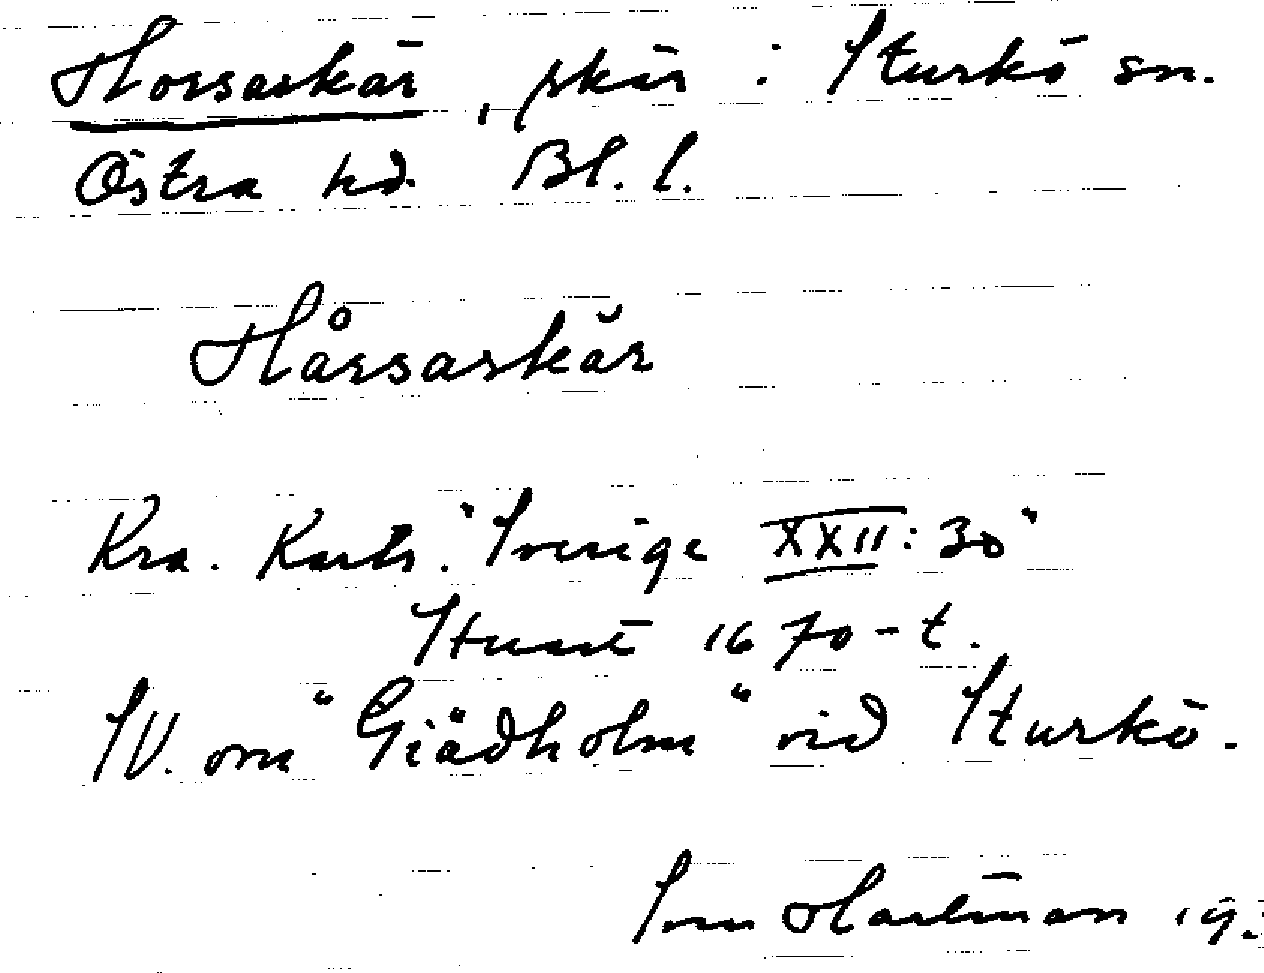 Horsaskär, skär i Sturkö sn.
Östra hd. Bl. l.
Hårsaskär
Kra. Kartv. "Sverige XXII:30"
1670-t.
SV. om "Giädholm" vid Sturkö.
Hartman 19